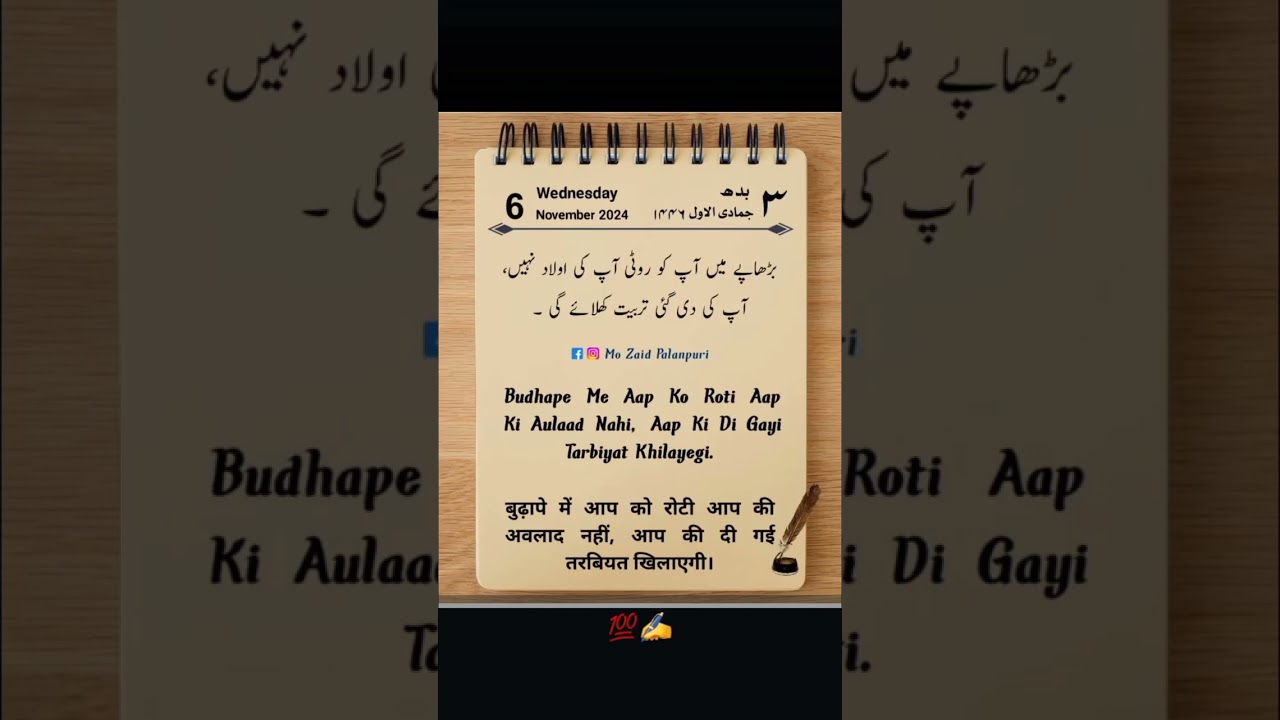 6
Wednesday
November 2024
۳
بدھ
جمادی الاول ۱۴۴۶
بڑھاپے میں آپ کو روٹی آپ کی اولاد نہیں،
آپ کی دی گئی تربیت کھلائے گی ۔
Mo Zaid Palanpuri
Budhape Me Aap Ko Roti Aap
Ki Aulaad Nahi, Aap Ki Di Gayi
Tarbiyat Khilayegi.
बुढ़ापे में आप को रोटी आप की
अवलाद नहीं, आप की दी गई
तरबियत खिलाएगी।
💯✍️